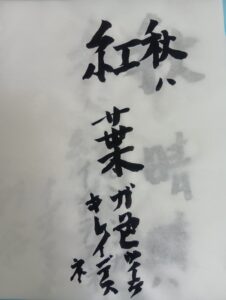 秋ハ
紅葉ガ色
キレイデス
ネ